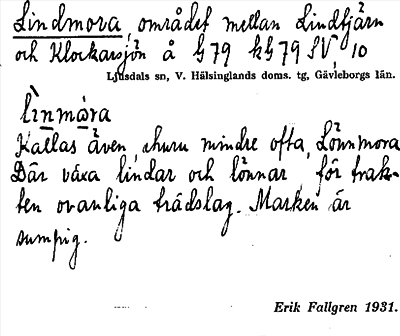 Lindmora, området mellan Lindtjärn
och Klockarsjön å G 79 kG 79 SV, 10
Ljusdals sn, V. Hälsinglands doms. tg, Gävleborgs län.
linmọra
Kallas även, ehuru mindre ofta, Lönnmora
Där växa lindar och lönnar, för trak-
ten ovanliga trädslag. Marken är
sumpig.
Erik Fallgren 1931.